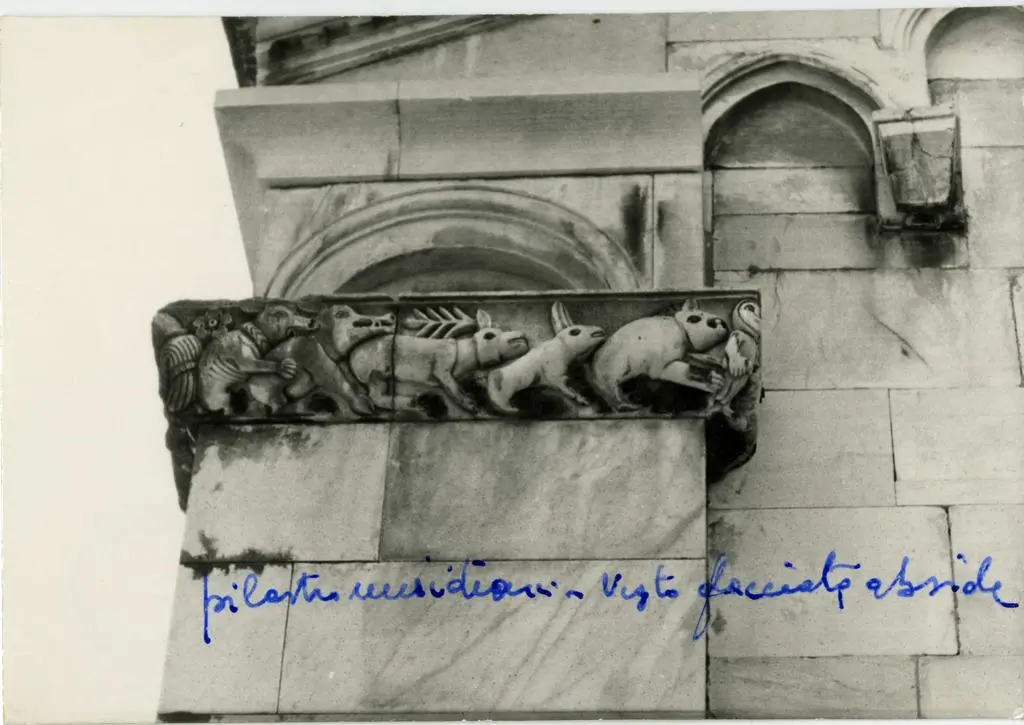 pilastri meridioni - Vista facciata abside